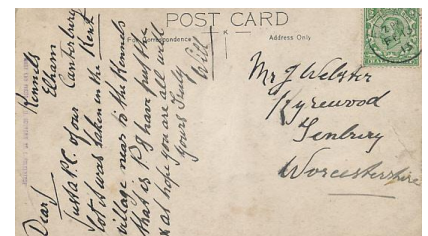 POST CARD
For Correspondence
Address Only
Kennels
Elham
Canterbury
Kent
Dear J
Just a P.C. of our
lot it was taken in the
village near to the Kennels
that is Pg have put the
x at hope you are all well
Yours Truly
Will
Mr J Webster
Kyrewood
Tenbury
Worcestershire